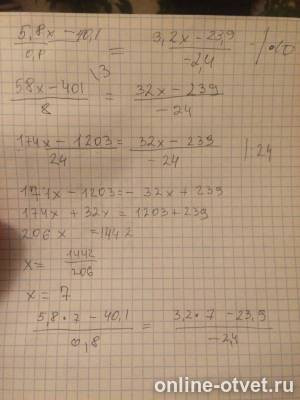 5,8x - 40,1 / 0,8 = 3,2x - 23,9 / -2,4 | · 10
58x - 401 / 8 \3 = 32x - 239 / -24
174x - 1203 / 24 = 32x - 239 / -24 | · 24
177x - 1203 = - 32x + 239
174x + 32x = 1203 + 239
206x = 1442
x = 1442 / 206
x = 7
5,8 · 7 - 40,1 / 0,8 = 3,2 · 7 - 23,9 / -2,4
online-otvet.ru